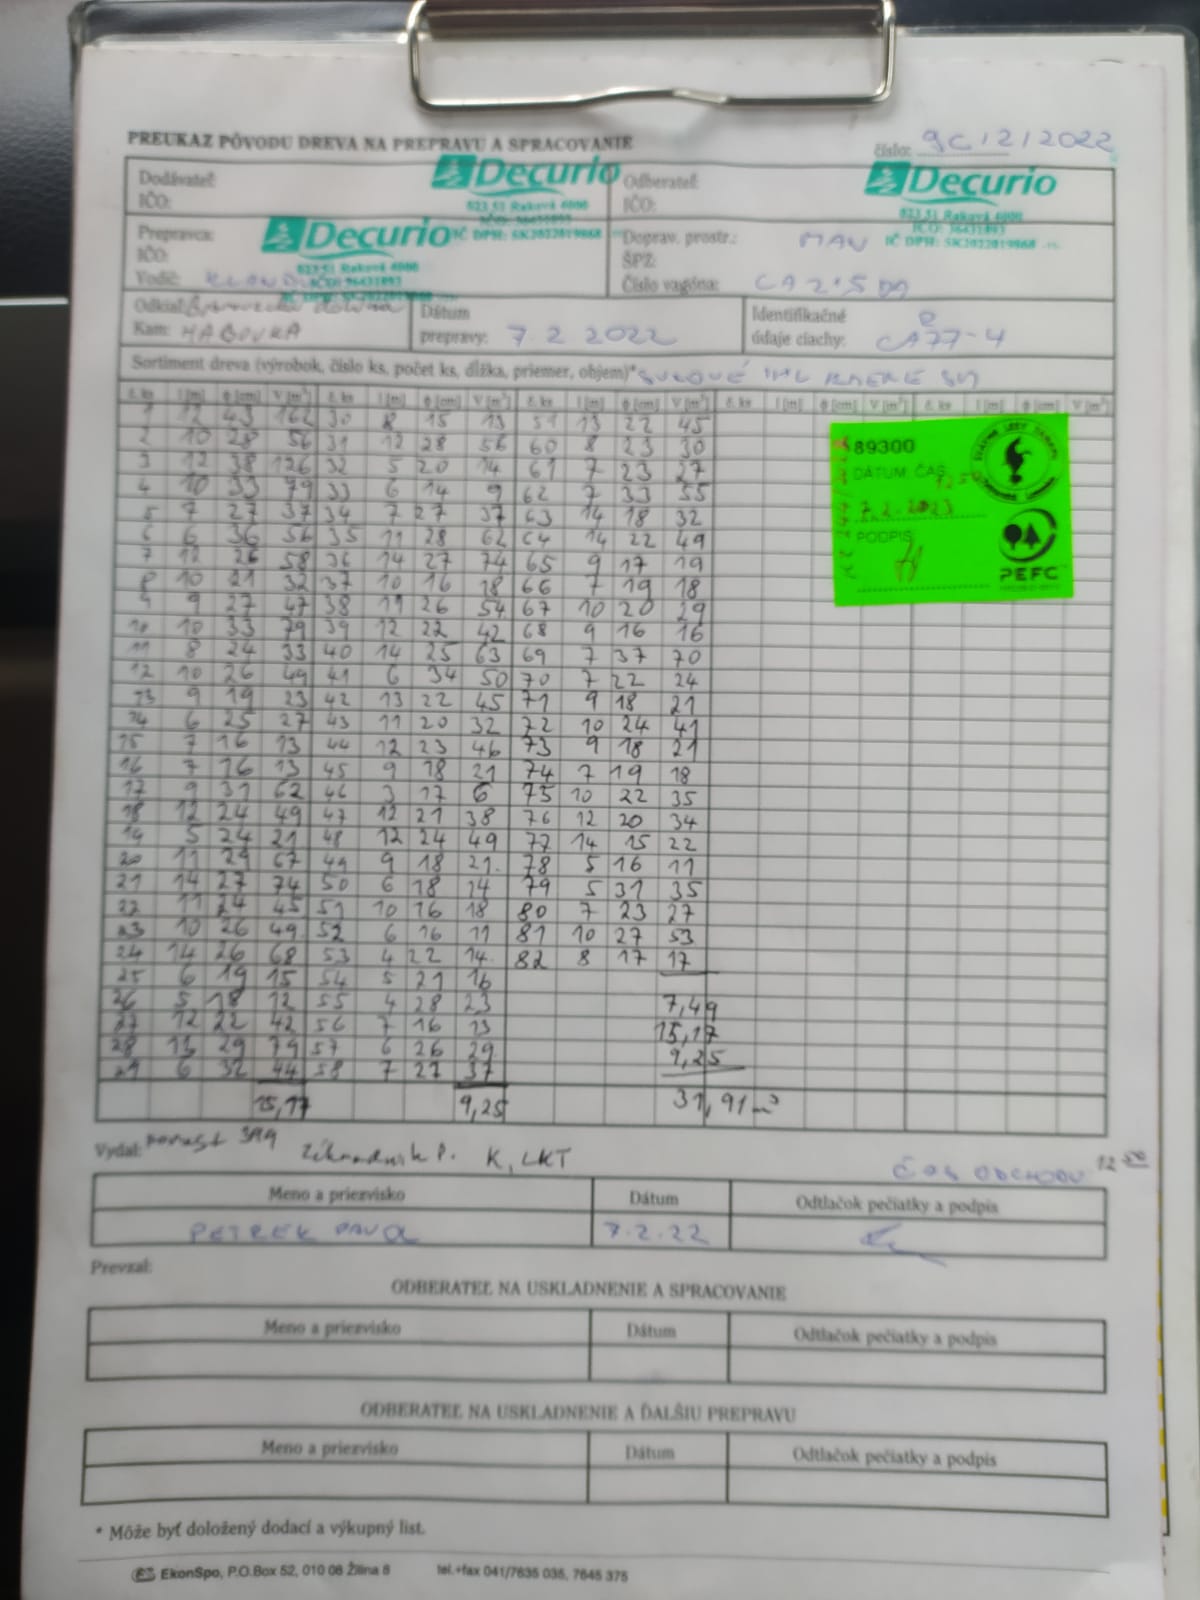 PREUKAZ PÔVODU DREVA NA PREPRAVU A SPRACOVANIE
číslo: 9C 12/2022
Dodávateľ:
IČO:
Decurio
023 51 Raková 4000
IČO: 36431893
IČ DPH: SK2022019868
Odberateľ:
IČO:
Decurio
023 51 Raková 4000
IČO: 36431893
IČ DPH: SK2022019868
Prepravca:
IČO:
Vodič:
Decurio
023 51 Raková 4000
IČO: 36431893
IČ DPH: SK2022019868
Doprav. prostr.: MAN
ŠPZ:
Číslo vagóna:
Odkiaľ:
Kam: HABOVKA
Dátum
prepravy: 7.2 2022
Identifikačné
údaje ciachy: CA77-4
Sortiment dreva (výrobok, číslo ks, počet ks, dĺžka, priemer, objem)*
č. ks l [m] φ [cm] V [m³] č. ks l [m] φ [cm] V [m³] č. ks l [m] φ [cm] V [m³] č. ks l [m] φ [cm] V [m³] č. ks l [m] φ [cm] V [m³]
1 12 43 162 30 8 15 13 59 13 22 45
2 10 28 56 31 12 28 56 60 8 23 30
3 12 38 126 32 5 20 14 61 7 23 27
4 10 33 79 33 6 14 9 62 7 33 55
5 7 27 37 34 7 27 37 63 14 18 32
6 6 36 56 35 11 28 62 64 14 22 49
7 12 26 58 36 14 27 74 65 9 17 19
8 10 21 32 37 10 16 18 66 7 19 18
9 9 27 47 38 11 26 54 67 10 20 29
10 10 33 79 39 12 22 42 68 9 16 16
11 8 24 33 40 14 25 63 69 7 37 70
12 10 26 49 41 6 34 50 70 7 22 24
13 9 19 23 42 13 22 45 71 9 18 21
14 6 25 27 43 11 20 32 72 10 24 41
15 7 16 13 44 12 23 46 73 9 18 21
16 7 16 13 45 9 18 21 74 7 19 18
17 9 31 62 46 3 17 6 75 10 22 35
18 12 24 49 47 12 21 38 76 12 20 34
19 5 24 21 48 12 24 49 77 14 15 22
20 11 29 67 49 9 18 21 78 5 16 11
21 14 27 74 50 6 18 14 79 5 31 35
22 11 24 45 51 10 16 18 80 7 23 27
23 10 26 49 52 6 16 11 81 10 27 53
24 14 26 68 53 4 22 14 82 8 17 17
25 6 19 15 54 5 21 16
26 5 18 12 55 4 28 23 7,49
27 12 22 42 56 7 16 13 15,17
28 13 29 79 57 6 26 29 9,25
29 6 32 44 58 7 27 37
15,17 9,25 31,91 m³
89300
DÁTUM, ČAS
PODPIS
PEFC
Vydal: porast 399 Záhradník P. K, LKT
ČAS ODCHODU 12 50
Meno a priezvisko Dátum Odtlačok pečiatky a podpis
PETREK PAVOL 7.2.22
Prevzal:
ODBERATEĽ NA USKLADNENIE A SPRACOVANIE
Meno a priezvisko Dátum Odtlačok pečiatky a podpis
ODBERATEĽ NA USKLADNENIE A ĎALŠIU PREPRAVU
Meno a priezvisko Dátum Odtlačok pečiatky a podpis
* Môže byť doložený dodací a výkupný list.
EkonSpo, P.O.Box 52, 010 08 Žilina 8 tel.+fax 041/7635 035, 7645 375